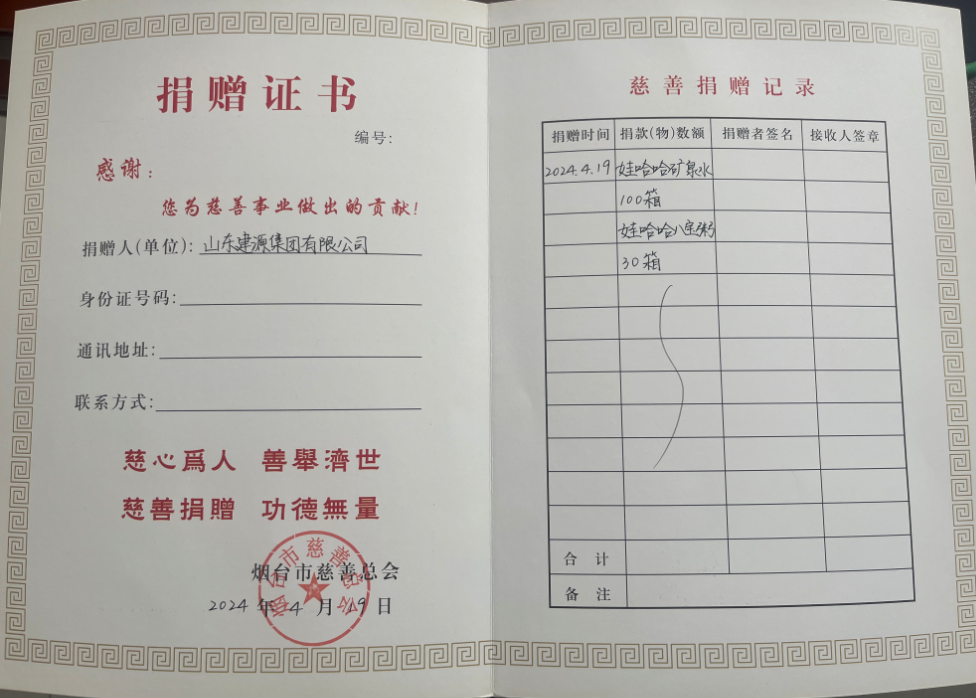 捐赠证书
编号：
感谢：
您为慈善事业做出的贡献！
捐赠人（单位）：山东建源集团有限公司
身份证号码：
通讯地址：
联系方式：
慈心爲人 善舉濟世
慈善捐贈 功德無量
烟台市慈善总会
2024年4月19日
烟台市慈善总会
慈善捐赠记录
捐赠时间 捐款（物）数额 捐赠者签名 接收人签章
2024.4.19 娃哈哈矿泉水
100箱
娃哈哈八宝粥
30箱
合计
备注